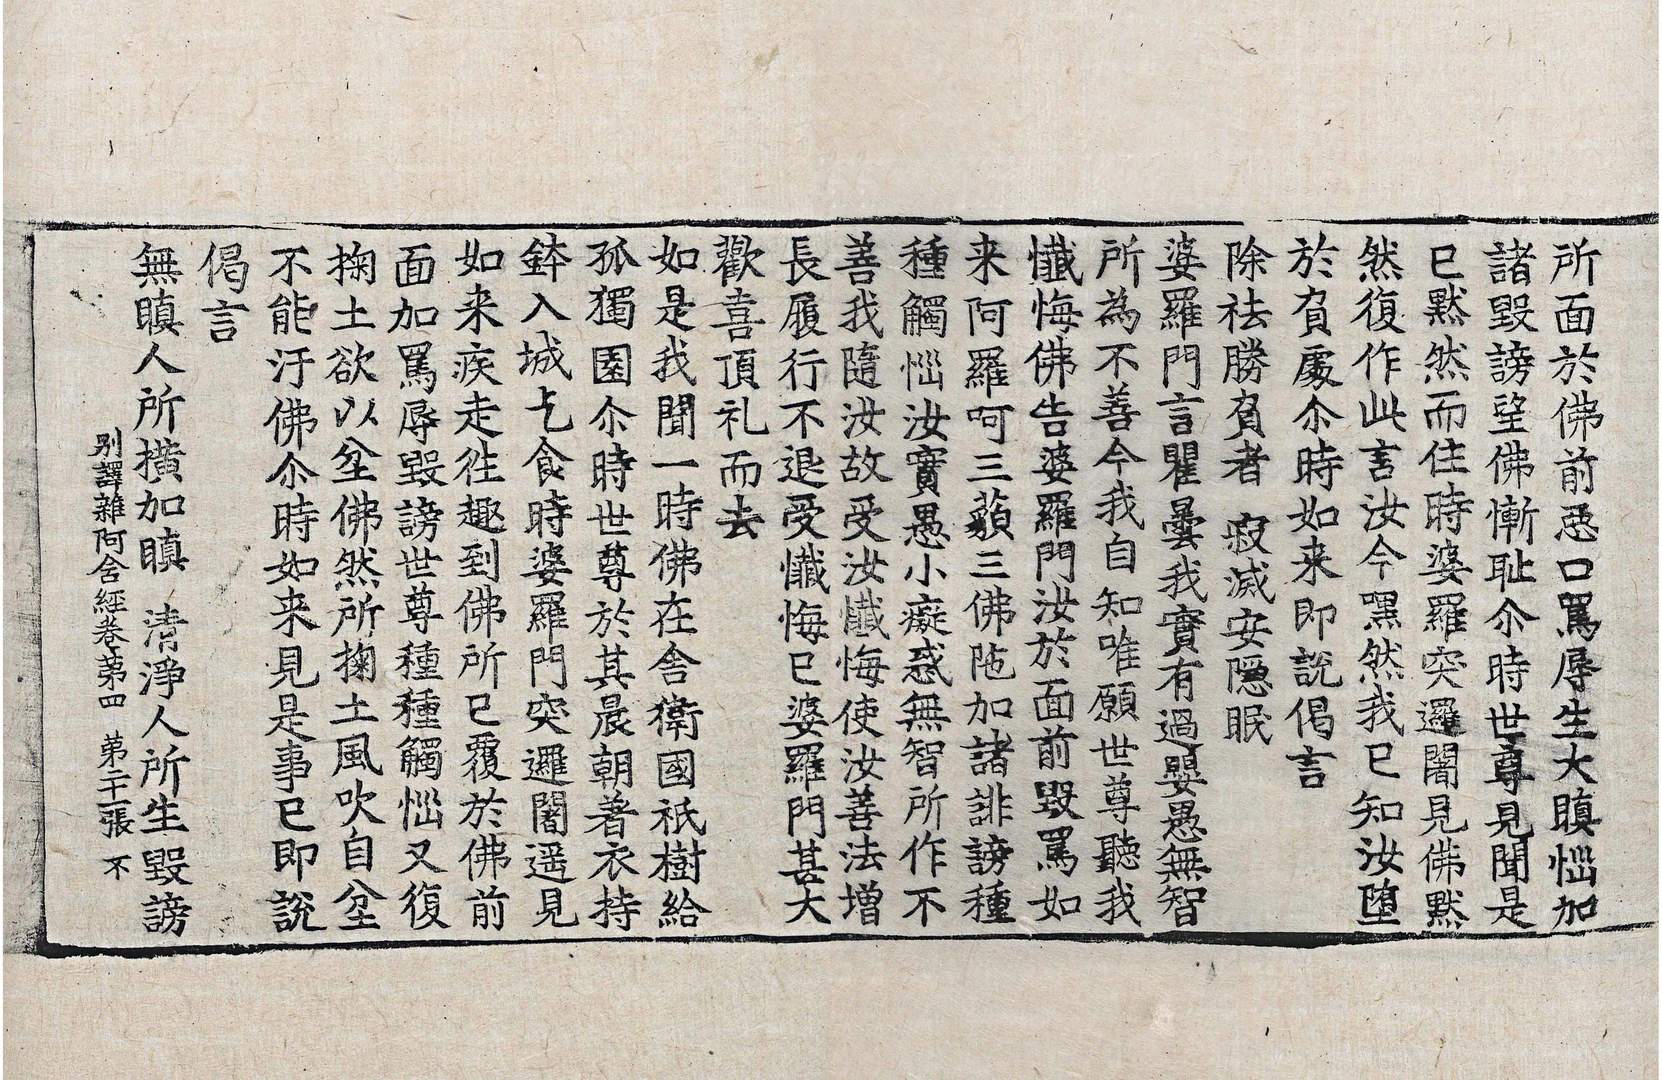 所面於佛前惡口罵辱生大瞋惱加
諸毀謗望佛慚耻尒時世尊見聞是
已黙然而住時婆羅突邏闍見佛黙
然復作此言汝今嘿然我已知汝墮
於負處尒時如来即說偈言
除祛勝負者 寂滅安隠眠
婆羅門言瞿曇我實有過嬰愚無智
所為不善今我自知唯願世尊聽我
懺悔佛告婆羅門汝於面前毀罵如
来阿羅呵三藐三佛陁加諸誹謗種
種觸惱汝實愚小癡惑無智所作不
善我隨汝故受汝懺悔使汝善法增
長履行不退受懺悔已婆羅門甚大
歡喜頂礼而去
如是我聞一時佛在舍衛國祇樹給
孤獨園尒時世尊於其晨朝著衣持
鉢入城乞食時婆羅門突邏闍遥見
如来疾走徃趣到佛所已覆於佛前
面加罵辱毀謗世尊種種觸惱又復
掬土欲以坌佛然所掬土風吹自坌
不能汙佛尒時如来見是事已即說
偈言
無瞋人所撗加瞋 清淨人所生毀謗
别譯雜阿含經卷苐四 苐二十張 不